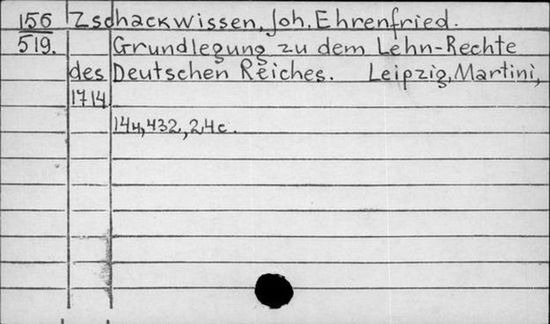 156 Zschackwissen, Joh. Ehrenfried.
519. Grundlegung zu dem Lehn-Rechte
des Deutschen Reiches. Leipzig, Martini,
1714
14н, 432, 24с.